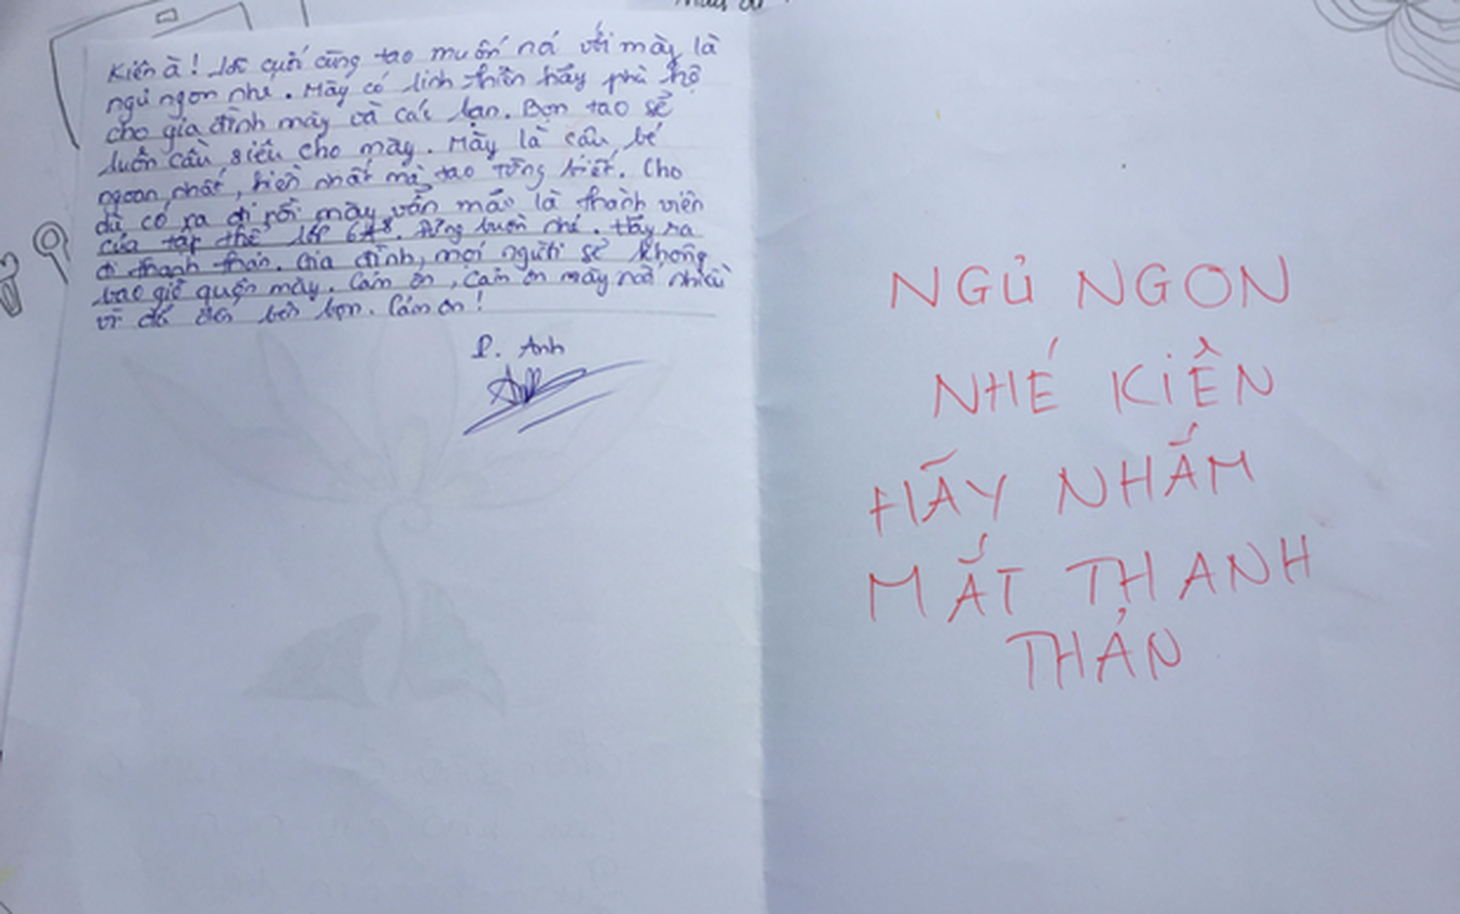 Kiên à! Lời cuối cùng tao muốn nó với mày là
ngủ ngon nhé. Mày có linh thiên hãy phù hộ
cho gia đình mày và các bạn. Bọn tao sẽ
luôn cầu siêu cho mày. Mày là cậu bé
ngoan nhất, hiền nhất mà tao từng biết. Cho
dù có ra đi rồi mày vẫn mãi là thành viên
của tập thể lớp 6A8. Đừng buồn nhé. Hãy ra
đi thanh thản. Gia đình, mọi người sẽ không
bao giờ quên mày. Cảm ơn, cảm ơn mày rất nhiều
vì đã bạn. Cảm ơn!
P. Anh
NGỦ NGON
NHÉ KIÊN
HÃY NHẮM
MẮT THANH
THẢN